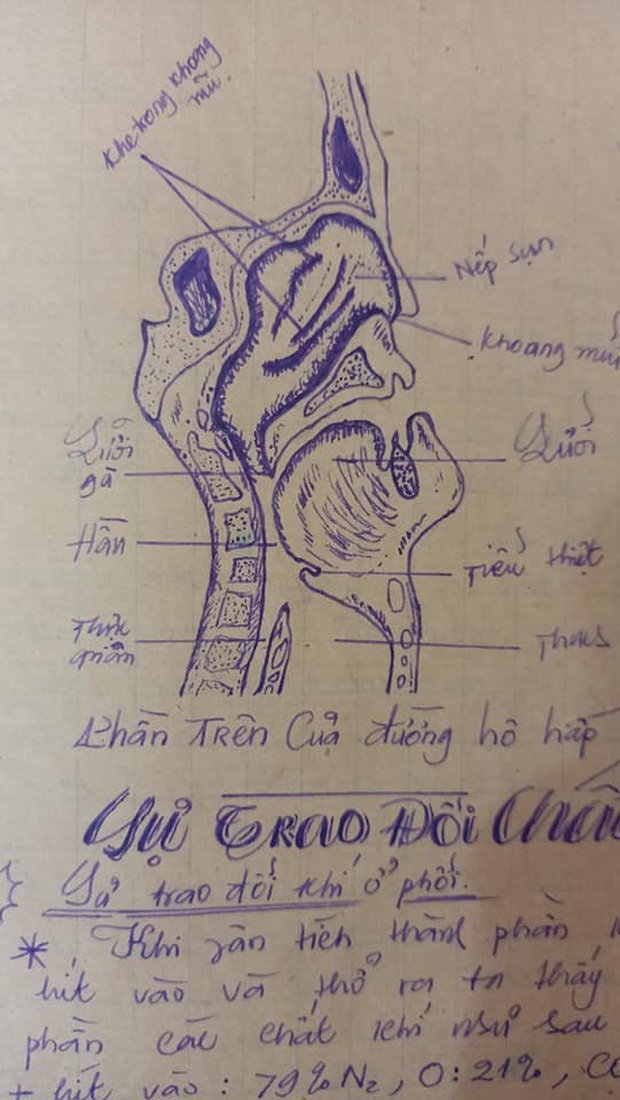 Khe trong khoang
mũi.
Nếp sụn
Khoang mũi
Lưỡi
gà
Lưỡi
Hầu
Tiểu thiệt
Thực
quản
Phần Trên Của đường hô hấp
Sự Trao Đổi Chấ
Sự trao đổi khí ở phổi.
* Khi phân tích thành phần
hít vào và thở ra ta thấy
phần các chất khí như sau
+ hít vào : 79% N₂, O: 21%, CO